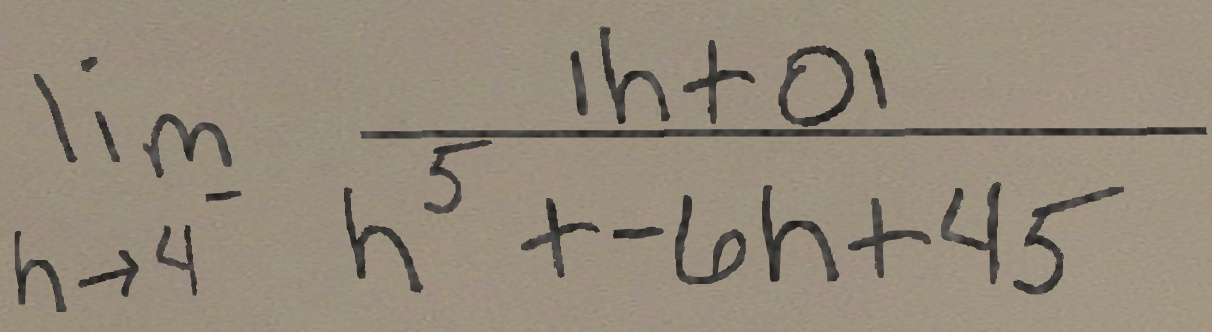 lim h→4⁻ |h+0| / h⁵+-6h+45